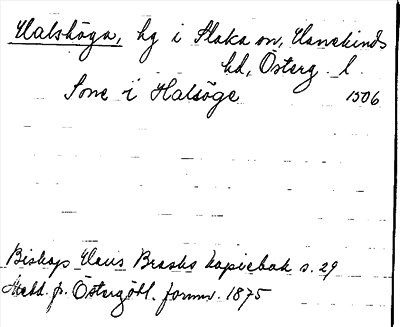 Valshöga, hg i Slaka sn, Hanekinds
hd, Österg l.
Sone i Halsöge 1506
Biskop Hans Brasks kopiebok s. 29
Medd. fr. Östergötl. fornm. 1875